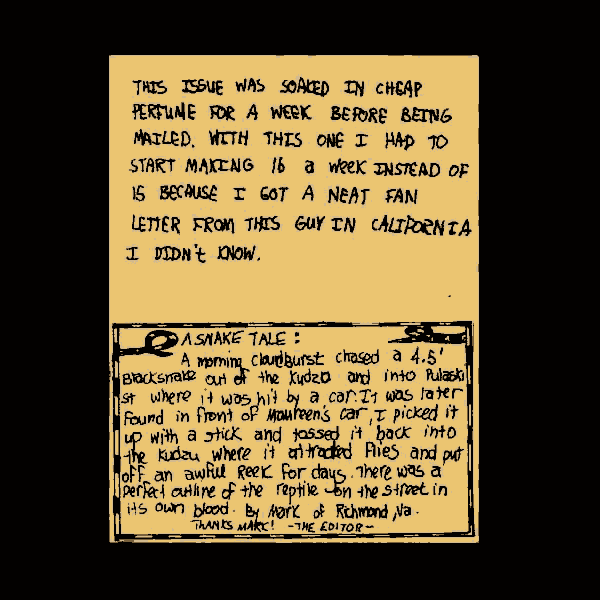 THIS ISSUE WAS SOAKED IN CHEAP
PERFUME FOR A WEEK BEFORE BEING
MAILED. WITH THIS ONE I HAD TO
START MAKING 16 a week INSTEAD OF
15 BECAUSE I GOT A NEAT FAN
LETTER FROM THIS GUY IN CALIFORNIA
I DIDN't KNOW.
A SNAKE TALE:
A morning cloudburst chased a 4.5'
Blacksnake out of the Kudzu and into Pulaski
st where it was hit by a car. It was later
found in front of Maureen's car, I picked it
up with a stick and tossed it back into
the Kudzu where it attracted flies and put
off an awful Reek for days. There was a
perfect outline of the reptile on the street in
its own blood. By Mark of Richmond, Va.
THANKS MARK! -THE EDITOR-